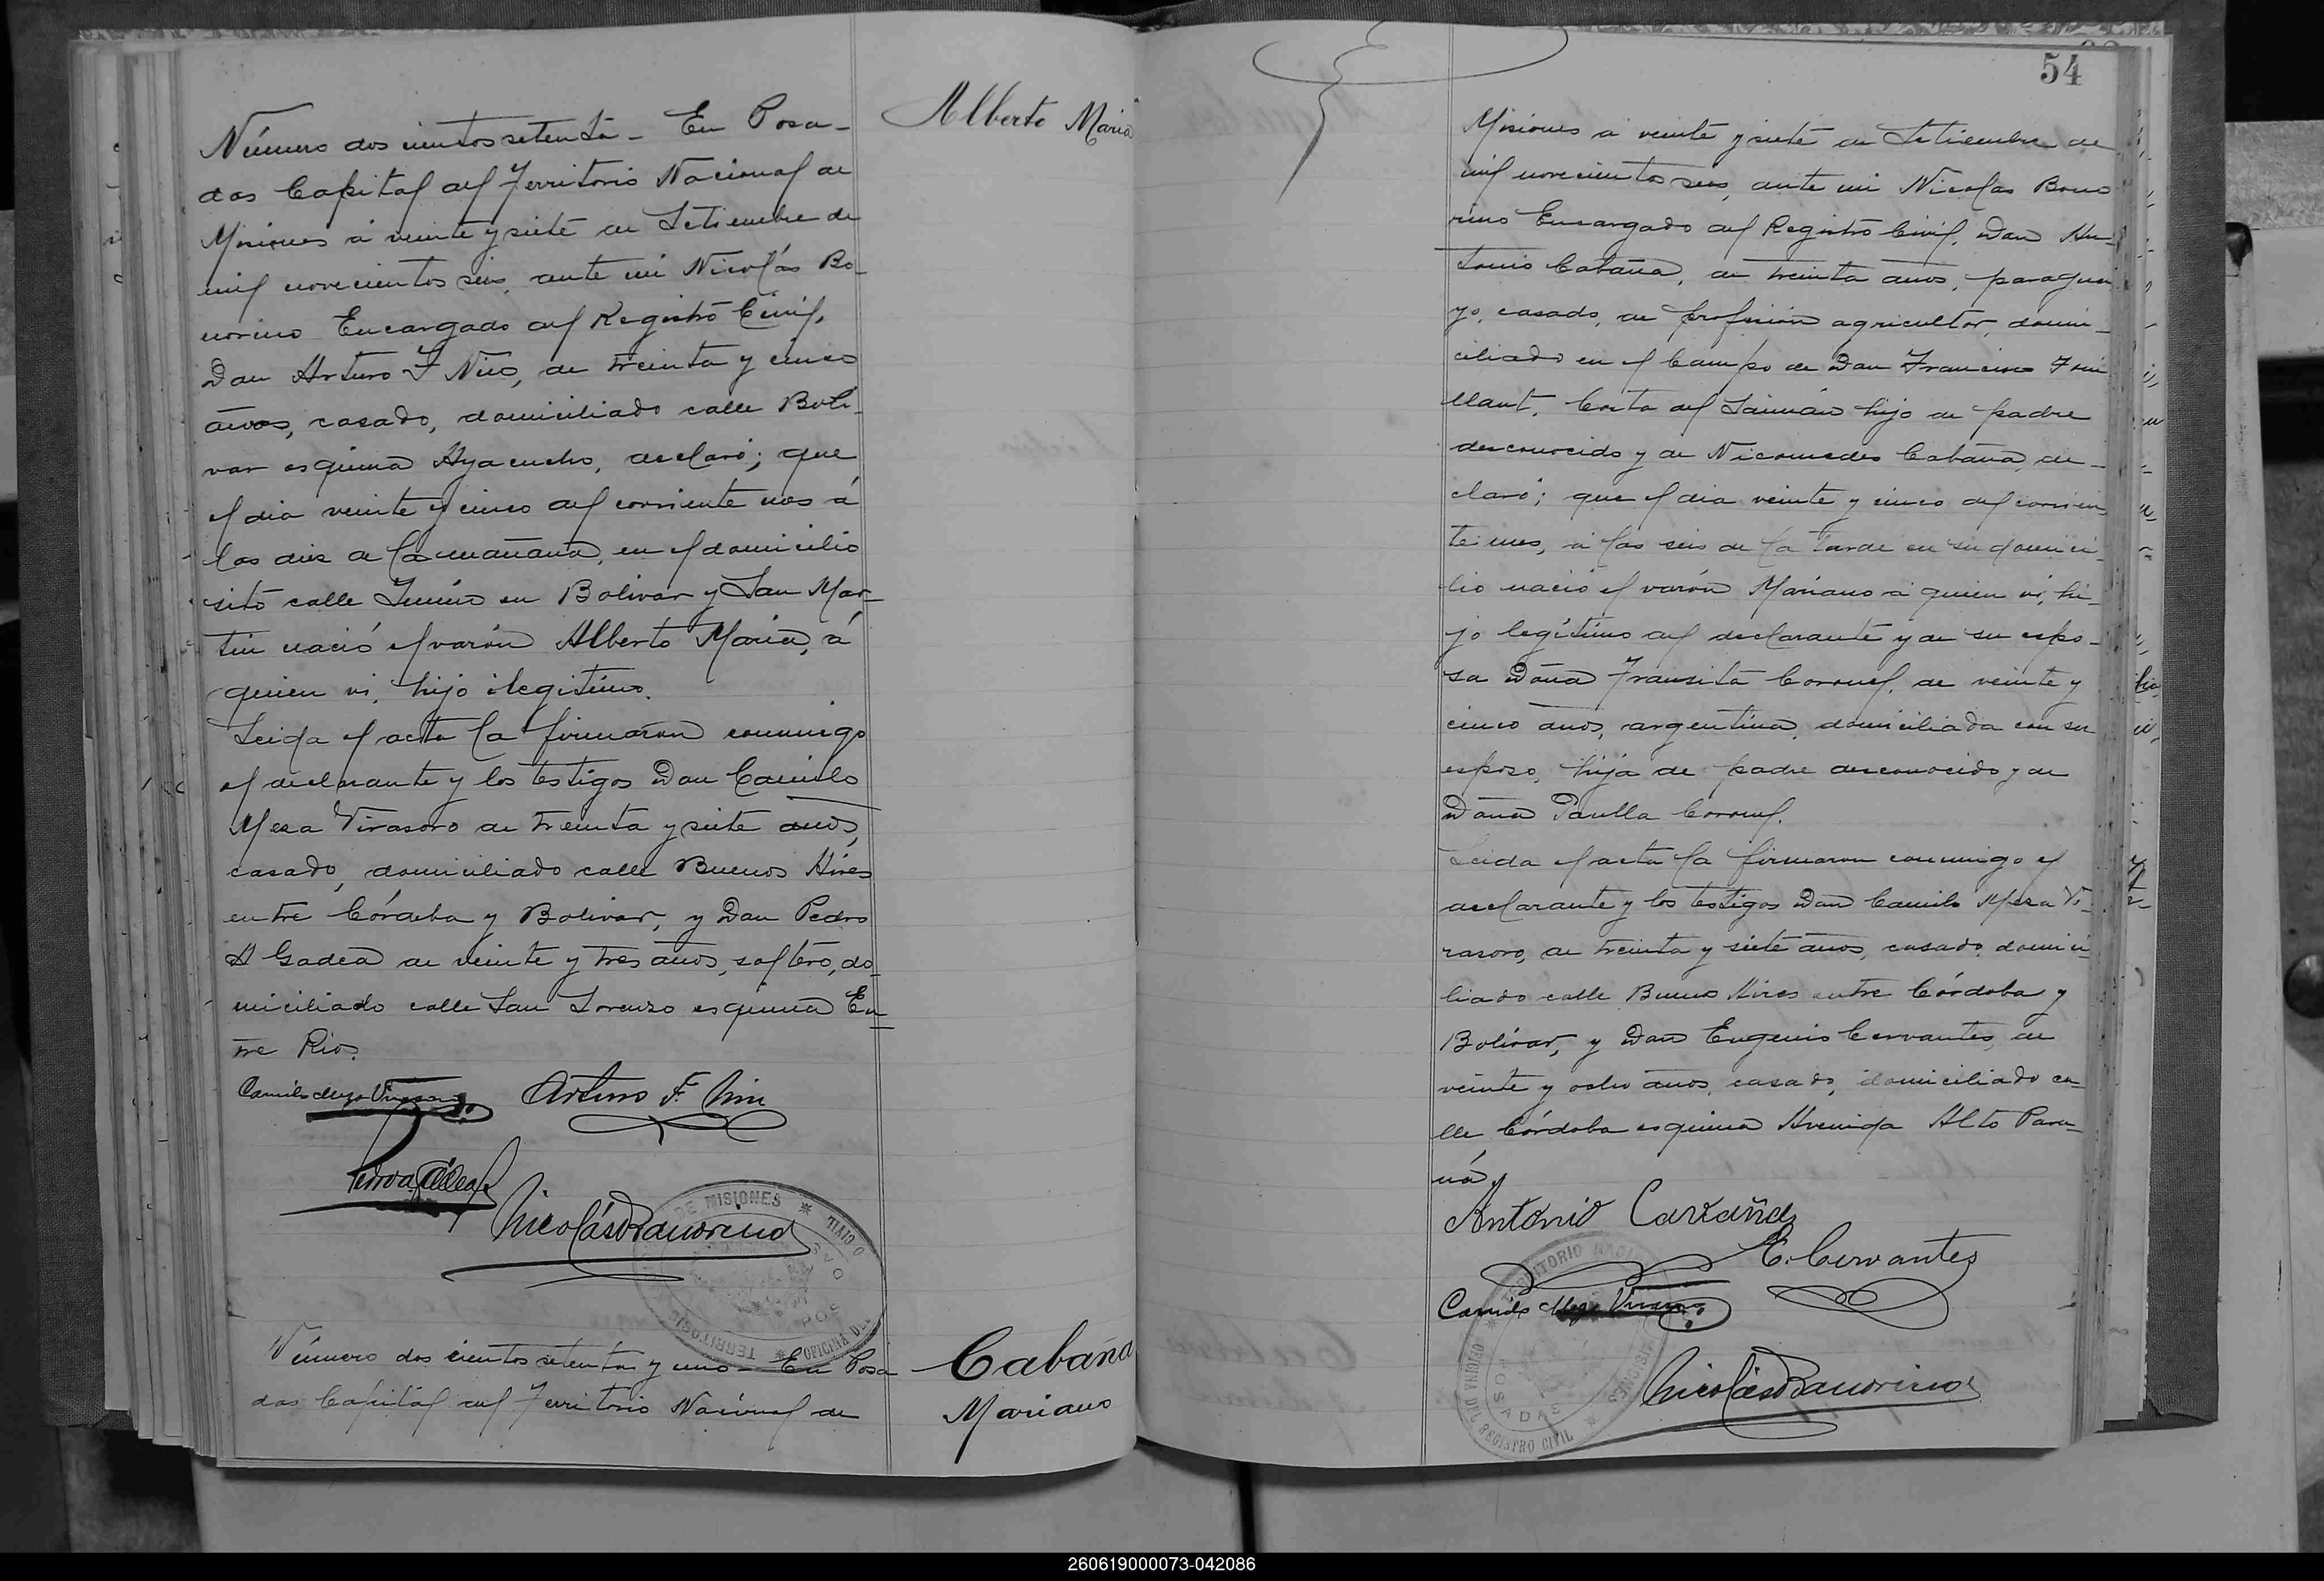 Número dos cientos setenta – En Posa-
das Capital del Territorio Nacional de
Misiones á veinte y siete de Setiembre de
mil novecientos seis, ante mi Nicolás Bo-
norino Encargado del Registro Civil,
Don Arturo F Nino, de treinta y cinco
años, casado, domiciliado calle Boli-
var esquina Ayacucho, declaró; que
el dia veinte y cinco del corriente mes á
las diez de la mañana, en el domicilio
sito calle Junin en Bolivar y San Mar-
tin nació el varón Alberto Maria, á
quien vi, hijo ilegitimo.
Leida el acta la firmaron conmigo
el declarante y los testigos Don Camilo
Meza Virasoro de treinta y siete años,
casado, domiciliado calle Buenos Aires
entre Córdoba y Bolivar, y Don Pedro
A Gadea de veinte y tres años, soltero, do-
miciliado calle San Lorenzo esquina En-
tre Rios.
Camilo Meza Virasoro Arturo F.
Nicolás Bonorino
DE MISIONES
TERRITORIO
OFICINA DEL
CIVIL
POSADAS
Número dos cientos setenta y uno – En Posa
das Capital del Territorio Nacional de
Alberto Maria
Cabaña
Mariano
54
Misiones á veinte y siete de Setiembre de
mil novecientos seis, ante mi Nicolas Bono
rino Encargado del Registro Civil, Don An-
tonio Cabaña, de treinta años, paragua
yo, casado, de profesión agricultor, domi-
ciliado en el Campo de Don Francisco
Costa del hijo de padre
desconocido y de Nicomedes Cabaña, de-
claró; que el dia veinte y cinco del corrien
te mes, á las seis de la tarde en su domici-
lio nació el varón Mariano á quien vi, hi-
jo legítimo del declarante y de su espo-
sa Doña Transita Coronel, de veinte y
cinco años, argentina, domiciliada con su
esposo, hija de padre desconocido y de
Doña Paulla Coronel.
Leida el acta la firmaron conmigo el
declarante y los testigos Don Camilo Meza Vi-
rasoro, de treinta y siete años, casado, domici-
liado calle Buenos Aires entre Córdoba y
Bolívar, y Don Eugenio Cervantes, de
veinte y ocho años, casado, domiciliado ca-
lle Córdoba esquina Avenida Alto Para-
ná
Antonio Cavaña
E. Cervantes
Camilo Meza Virasoro
TERRITORIO NACIONAL
MISIONES
OFICINA DEL REGISTRO CIVIL
POSADAS
Nicolás Bonorino
260619000073-042086